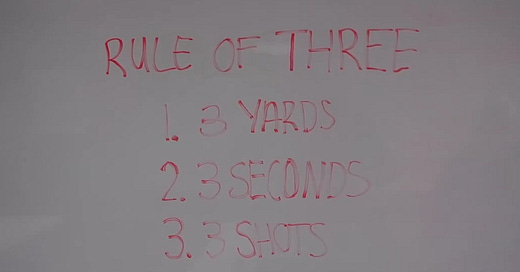 RULE OF THREE
1. 3 YARDS
2. 3 SECONDS
3. 3 SHOTS